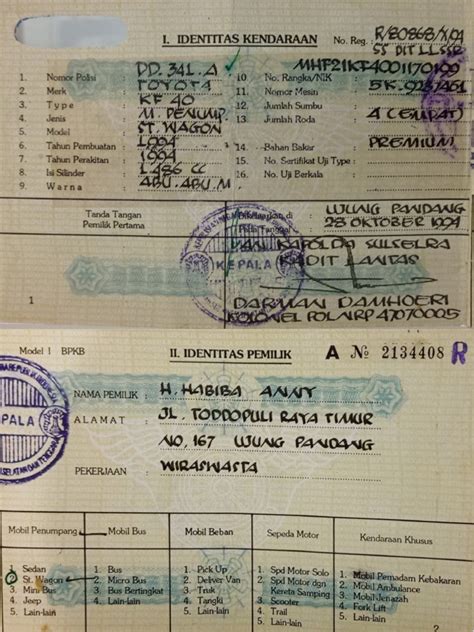 I. IDENTITAS KENDARAAN No. Reg. : R/80868/X/94
SS DIT LLSSR
1. Nomor Polisi : DD. 341. A
2. Merk : TOYOTA
3. Type : KF 40
4. Jenis : M. PENUMP.
5. Model : ST. WAGON
6. Tahun Pembuatan : 1994
7. Tahun Perakitan : 1994
8. Isi Silinder : 1.486 CC
9. Warna : ABU. ABU. M.
10 No. Rangka/NIK : MHF21KF4001170199
11 Nomor Mesin : 5K. 9237461
12. Jumlah Sumbu :
13. Jumlah Roda : 4 (EMPAT)
14. Bahan Bakar : PREMIUM
15. No. Sertifikat Uji Type :
16. No. Uji Berkala :
Tanda Tangan
Pemilik Pertama
Dikeluarkan di : UJUNG PANDANG
Pada Tanggal : 28 OKTOBER 1994
KAPOLDA SULSELRA
KADIT LANTAS
KEPALA
DARMAN DAMHOERI
KOLONEL POL NRP 47070005
1
Model 1 BPKB II. IDENTITAS PEMILIK A № 2134408 R
NAMA PEMILIK : H. HABIBA ANNY
ALAMAT : JL. TODDOPULI RAYA TIMUR
NO. 167 UJUNG PANDANG
PEKERJAAN : WIRASWASTA
Mobil Penumpang Mobil Bus Mobil Beban Sepeda Motor Kendaraan Khusus
1 Sedan 1. Bus 1. Pick Up 1. Spd Motor Solo 1. Mobil Pemadam Kebakaran
2 St. Wagon 2. Micro Bus 2. Deliver Van 2. Spd Motor dgn 2. Mobil Ambulance
Kereta Samping 3. Mobil Jenazah
3. Mini Bus 3. Mini Bus 3. Truk 3. Scooter 4. Fork Lift
4. Jeep 4. Lain-lain 4. Tangki 4. Trail 5. Lain-lain
5. Lain-lain 5. Lain-lain 5. Lain-lain
2